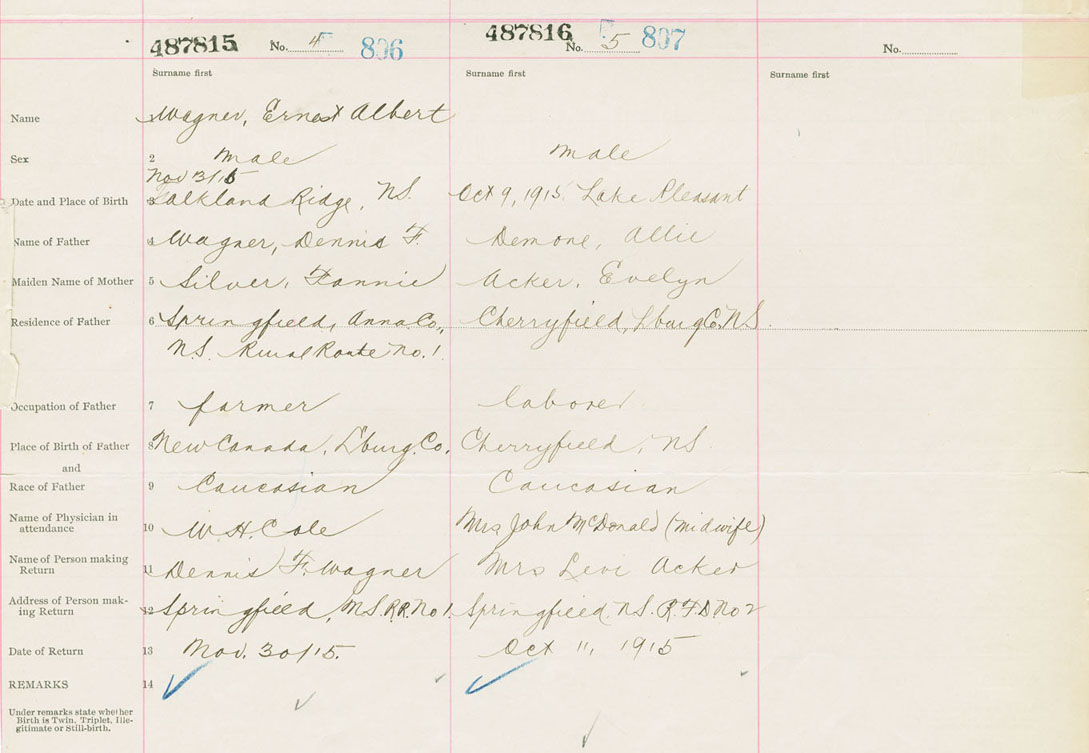 487815 No. 4 806 487816 No. 5 807 No.
Surname first Surname first Surname first
Name 1 Wagner, Ernest Albert
Sex 2 male male
Nov 3/15
Date and Place of Birth 3 Falkland Ridge, N.S. Oct 9, 1915. Lake Pleasant
Name of Father 4 Wagner, Dennis F. Demone, Allie
Maiden Name of Mother 5 Silver, Fannie Acker, Evelyn
Residence of Father 6 Springfield, Anna. Co., Cherryfield, L'burg Co. N.S.
N.S. Rural Route No. 1.
Occupation of Father 7 farmer laborer
Place of Birth of Father 8 New Canada, L'burg. Co. Cherryfield, N.S.
and
Race of Father 9 Caucasian Caucasian
Name of Physician in
attendance 10 W. H. Cole Mrs John McDonald (midwife)
Name of Person making
Return 11 Dennis F. Wagner Mrs Levi Acker
Address of Person mak-
ing Return 12 Springfield, N.S. R.R. No 1. Springfield. N.S. R.F.D. No 2
Date of Return 13 Nov. 30/15. Oct 11, 1915
REMARKS 14
Under remarks state whether
Birth is Twin, Triplet, Ille-
gitimate or Still-birth.